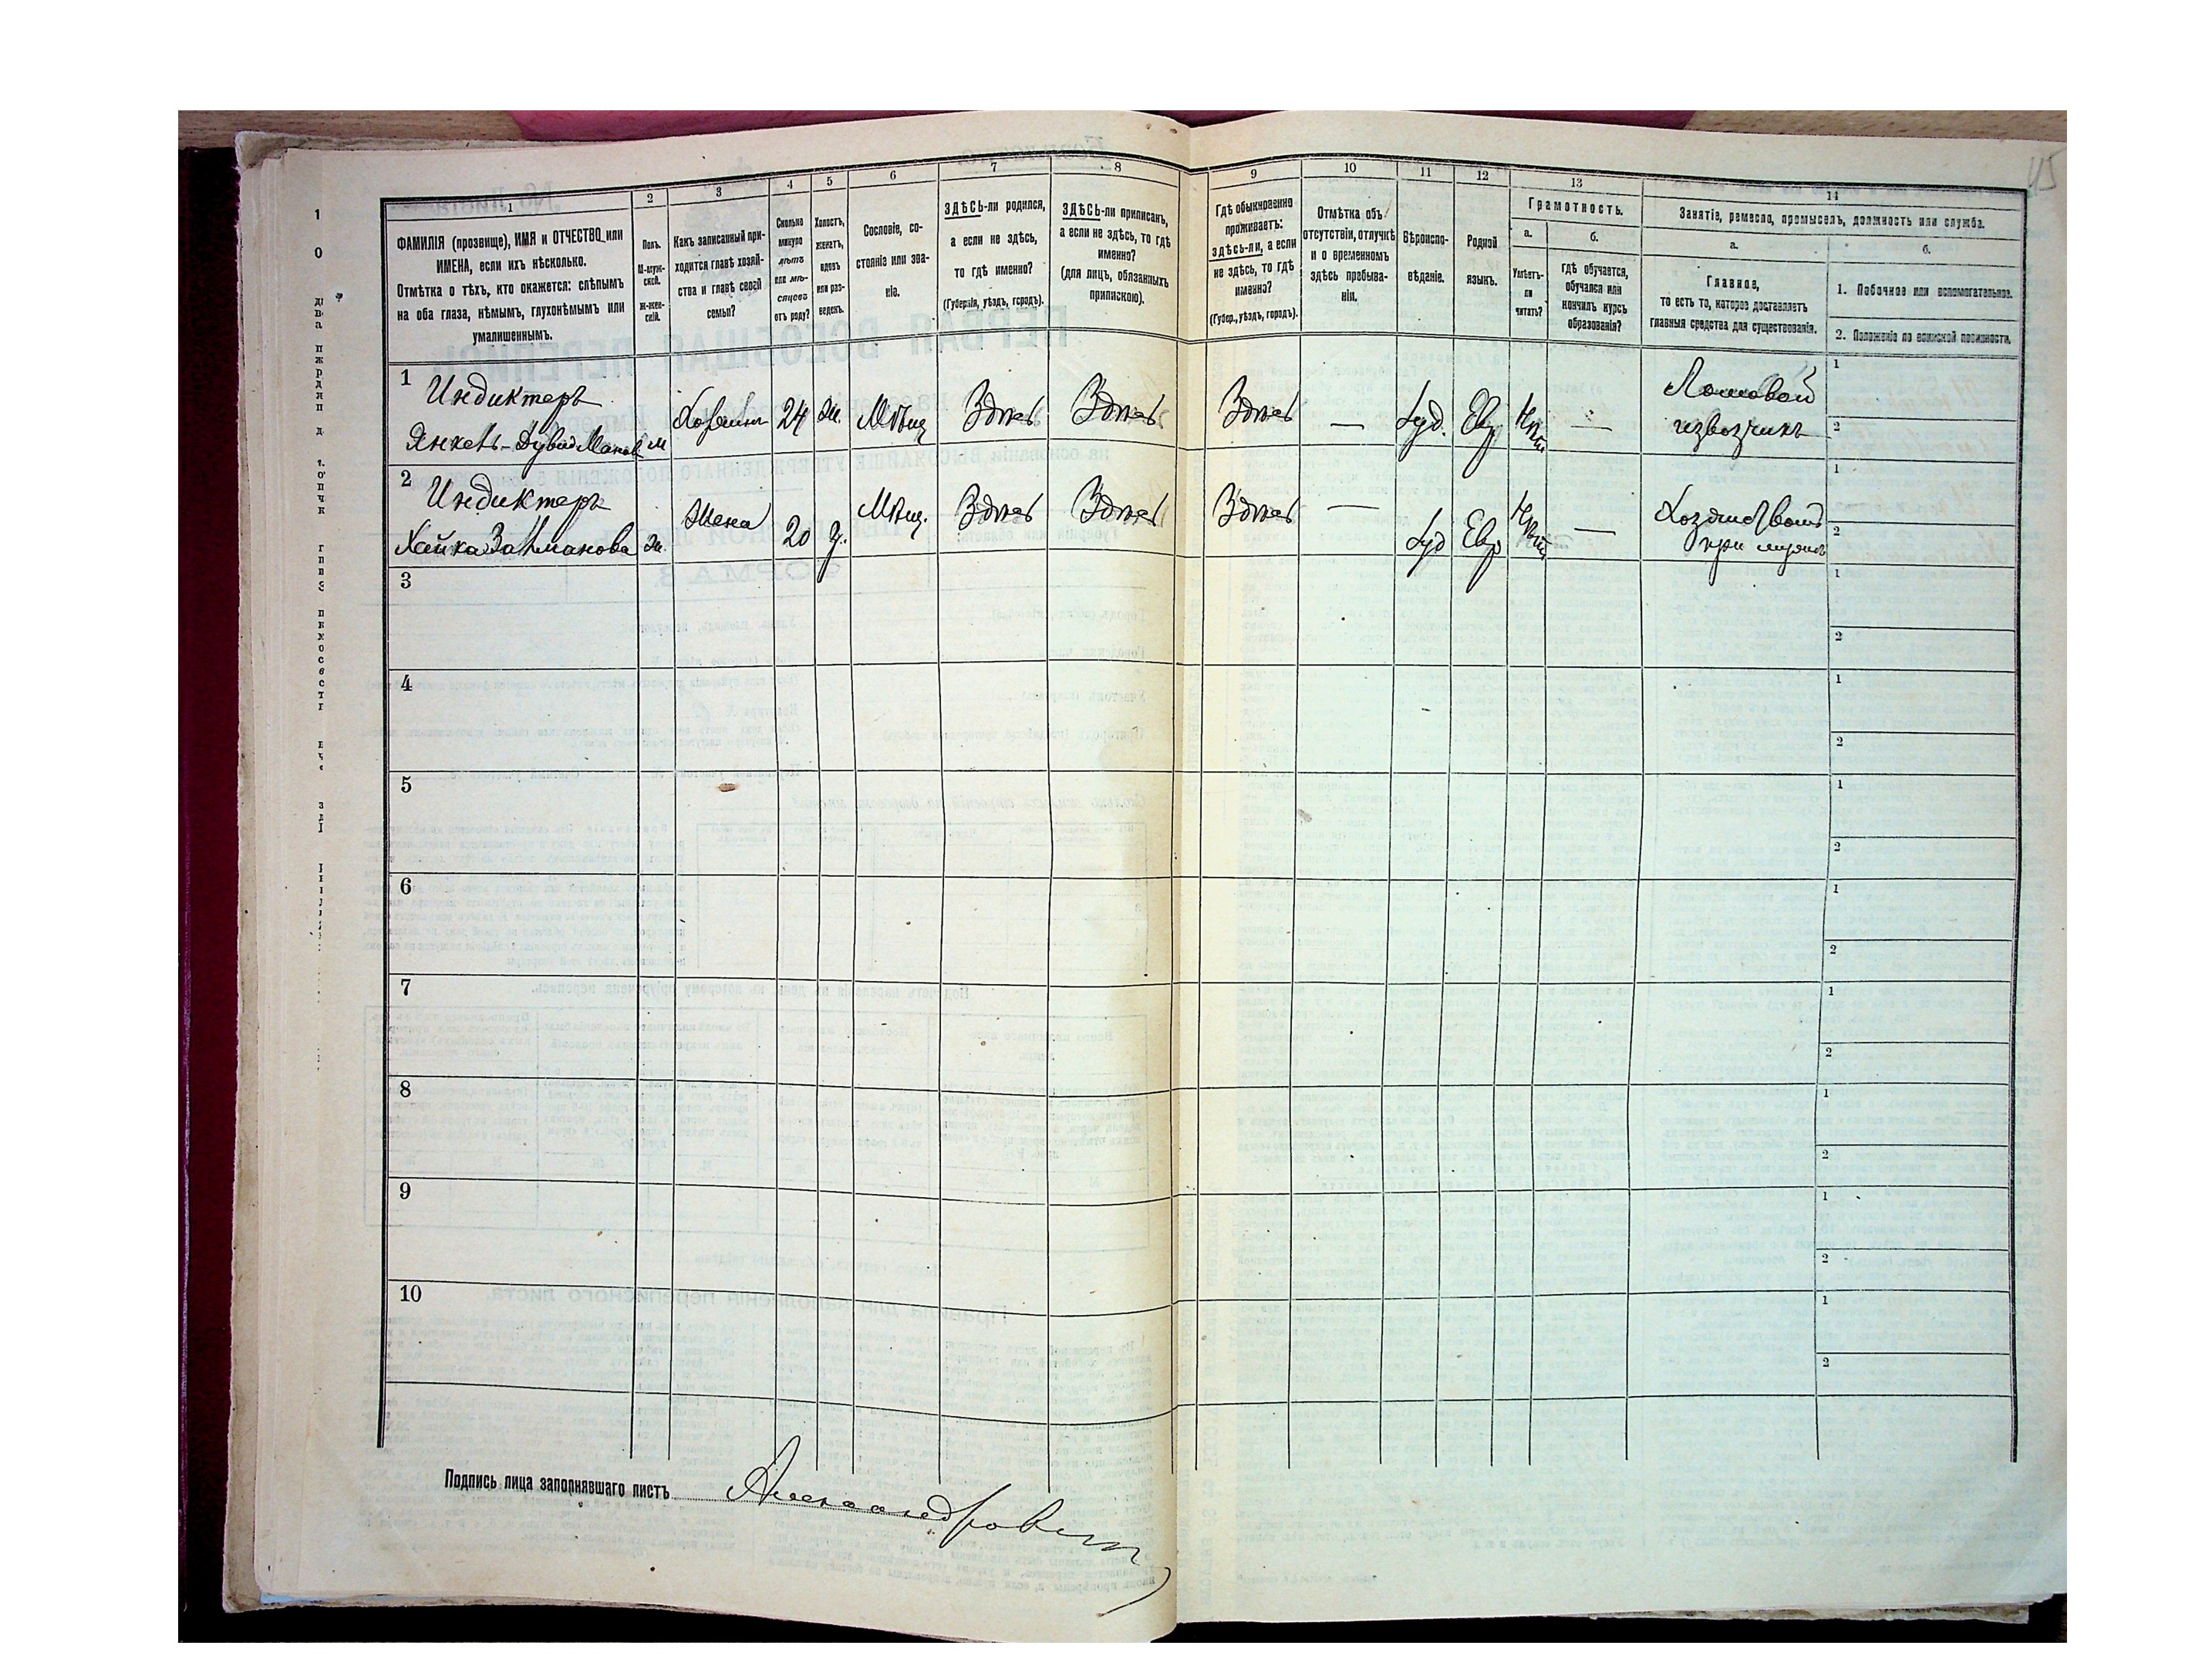 45
1
ФАМИЛІЯ (прозвище), ИМЯ и ОТЧЕСТВО или
ИМЕНА, если ихъ нѣсколько.
Отмѣтка о тѣхъ, кто окажется: слѣпымъ
на оба глаза, нѣмымъ, глухонѣмымъ или
умалишеннымъ.
2
Полъ.
М-муж-
ской.
ж-жен-
скій.
3
Какъ записанный при-
ходится главѣ хозяй-
ства и главѣ своей
семьи?
4
Сколько
минуло
лѣтъ
или мѣ-
сяцевъ
отъ роду?
5
Холостъ,
женатъ,
вдовъ
или раз-
веденъ.
6
Сословіе, со-
стояніе или зва-
ніе.
7
ЗДѢСЬ-ли родился,
а если не здѣсь,
то гдѣ именно?
(Губернія, уѣздъ, городъ).
8
ЗДѢСЬ-ли приписанъ,
а если не здѣсь, то гдѣ
именно?
(для лицъ, обязанныхъ
припискою).
9
Гдѣ обыкновенно
проживаетъ:
здѣсь-ли, а если
не здѣсь, то гдѣ
именно?
(Губер., уѣздъ, городъ).
10
Отмѣтка объ
отсутствіи, отлучкѣ
и о временномъ
здѣсь пребыва-
ніи.
11
Вѣроиспо-
вѣданіе.
12
Родной
языкъ.
13
Грамотность.
а.
Умѣетъ-
ли
читать?
б.
гдѣ обучается,
обучался или
кончилъ курсъ
образованія?
14
Занятіе, ремесло, промыселъ, должность или служба.
а.
Главное,
то есть то, которое доставляетъ
главныя средства для существованія.
б.
1. Побочное или вспомогательное.
2. Положеніе по воинской повинности.
1
Индиктеръ
Янкель-Дувид Манов. м
Хозяинъ 24 ж. Мѣщ Здѣсь Здѣсь Здѣсь — Іуд. Евр —
Ломовой
извозчикъ
1
2
2
Индиктеръ
Хайка Залманова ж.
Жена 20 з. Мѣщ. Здѣсь Здѣсь Здѣсь — Іуд Евр —
при мужѣ
1
2
3
1
2
4
1
2
5
1
2
6
1
2
7
1
2
8
1
2
9
1
2
10
1
2
Подпись лица заполнявшаго листъ